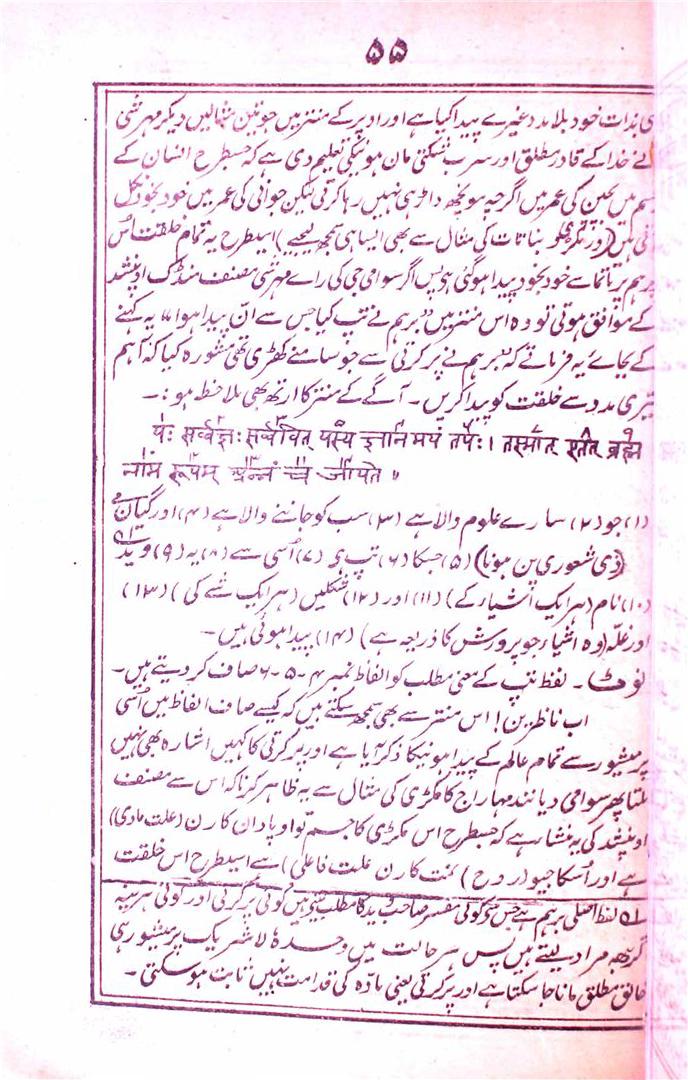 ۵۵
بذات خود بلا مدد غیرے پیدا کیا ہے اور اوپر کے منتر میں جو تین مثالیں دیکر مہرشی
نے خدا کے قادر مطلق اور سرب شکتی مان ہونیکی تعلیم دی ہے کہ جسطرح انسان کے
جسم میں بچپن کی عمر میں اگرچہ مونچھ داڑھی نہیں رہا کرتی لیکن جوانی کی عمر میں خود بخود نکل
(اور مکڑی و نباتات کی مثال سے بھی ایسا ہی سمجھ لیجیے) اسیطرح یہ تمام خلقت اُس
برہم پرماتما سے خود بخود پیدا ہو گئی ہو پس اگر سوامی جی کی رائے مہرشی مصنف منڈک اوپنشد
کے موافق ہوتی تو وہ اس منتر میں "برہم نے تپ کیا جس سے انّ پیدا ہوا" یہ کہنے
کے بجائے یہ فرماتے کہ برہم نے پرکرتی سے جو سامنے کھڑی تھی مشورہ کیا کہ آ ہم
تیری مدد سے خلقت کو پیدا کریں۔ آگے کے منتر کا ارتھ بھی ملاحظہ ہو:۔
यः सर्व्वज्ञः सर्व्ववित् यस्य ज्ञान मयं तपः। तस्मात् एतत् ब्रह्म
नाम रूपम् अन्नं च जायते॥
(۱) جو (۲) سارے علوم والا ہے (۳) سب کو جاننے والا ہے (۴) اور گیان مے
(ذی شعوری بن ہونا) (۵) جسکا (۶) تپ ہی (۷) اُسی سے (۸) یہ (۹) وید ؎۱
(۱۰) نام (ہر ایک اشیار کے) (۱۱) اور (۱۲) شکلیں (ہر ایک شے کی) (۱۳)
اور غلّہ (وہ اشیاء جو پرورش کا ذریعہ ہے) (۱۴) پیدا ہوئی ہیں۔
نوٹ۔ لفظ تپ کے معنی مطلب کو الفاظ نمبر ۴-۵-۶ صاف کر دیتے ہیں۔
اب ناظرین! اس منتر سے بھی سمجھ سکتے ہیں کہ کیسے صاف الفاظ میں اُسی
پرمیشور سے تمام عالم کے پیدا ہونیکا ذکر آیا ہے اور پرکرتی کا کہیں اشارہ بھی نہیں
ملتا پھر سوامی دیانند مہاراج کا مکڑی کی مثال سے یہ ظاہر کرنا کہ اس سے مصنف
اوپنشد کی یہ منشا رہے کہ جسطرح اس مکڑی کا جسم تو اوپادان کارن (علت مادی)
ہے اور اُسکا جیو (روح) نمت کارن علت فاعلی) ہے اسیطرح اس خلقت
؎۱ لفظ اصلی برہم ہے جس سے کوئی مفسر صاحب وید کا مطلب لیتے ہیں کوئی پرکرتی اور کوئی ہرنیہ
گربھ مراد لیتے ہیں پس ہر حالت میں وحدہٗ لا شریک پرمیشور ہی
خالق مطلق مانا جا سکتا ہے اور پرکرتی یعنی مادّہ کی قدامت نہیں ثابت ہو سکتی۔